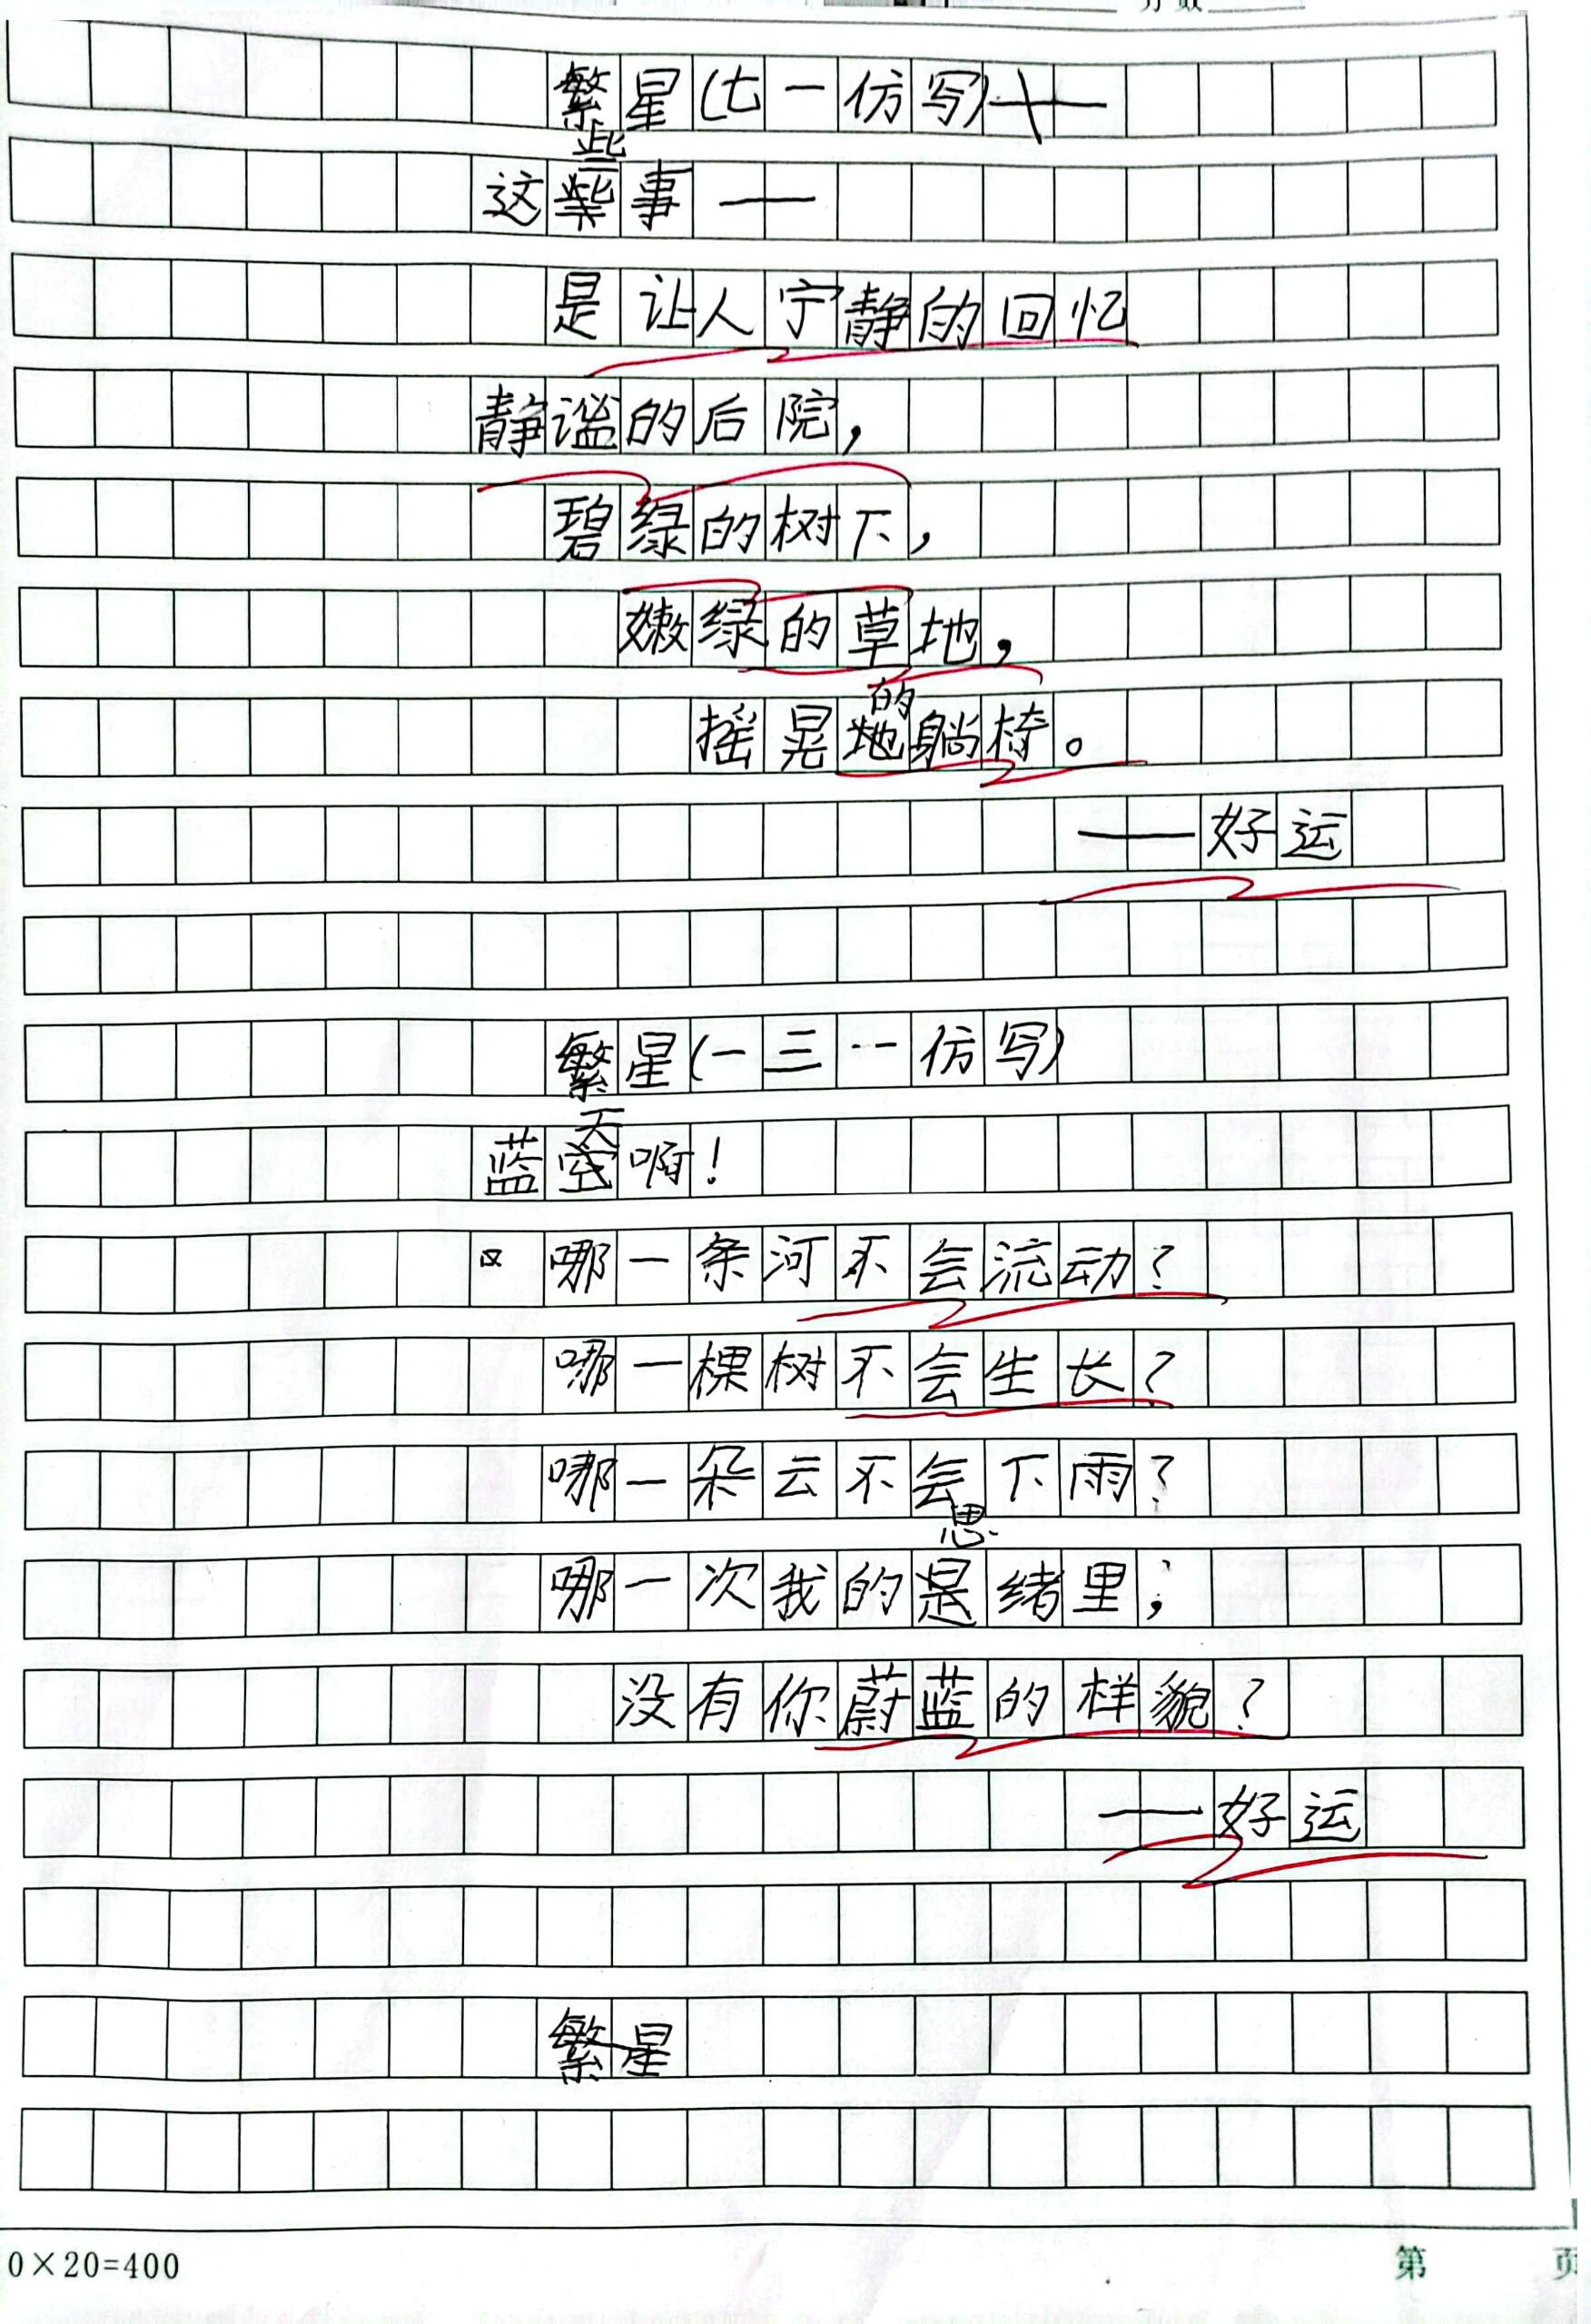 繁星(七一仿写)
些
这些事——
是让人宁静的回忆
静谧的后院，
碧绿的树下，
嫩绿的草地，
的
摇晃地躺椅。
——好运
繁星(一三一仿写)
天
蓝空啊！
哪一条河不会流动？
哪一棵树不会生长？
哪一朵云不会下雨？
思
哪一次我的是绪里；
没有你蔚蓝的样貌？
——好运
繁星
0×20=400
第 页